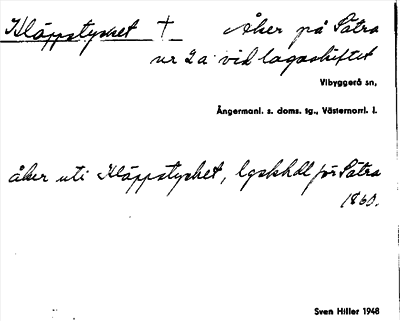 Kläppstycket † Åker på Sätra
nr 2a vid lagaskiftet
Vibyggerå sn,
Ångermanl. s. doms. tg., Västernorrl. l.
åker uti Kläppstycket, lgskhdl för Sätra
1860.
Sven Hiller 1948